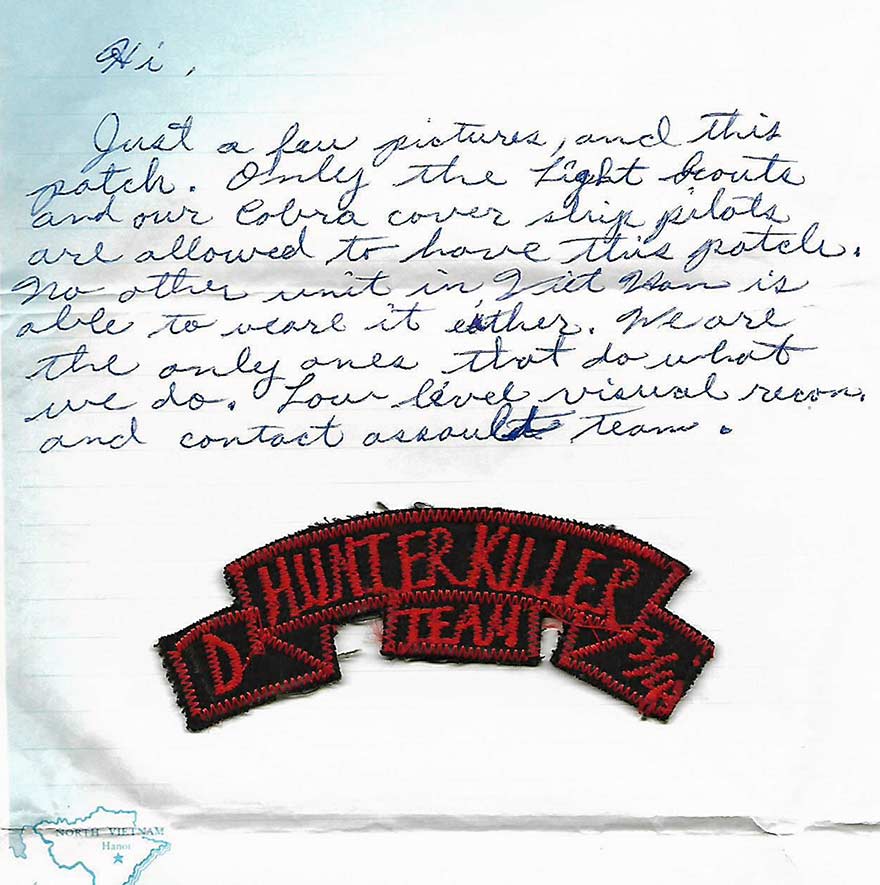 Hi,
Just a few pictures, and this
patch. Only the Light Scouts
and our Cobra cover strip pilots
are allowed to have this patch.
No other unit in Viet Nam is
able to weare it either. We are
the only ones that do what
we do. Low level visual recon.
and contact assault team.
HUNTER KILLER
D TEAM 3/4
NORTH VIETNAM
Hanoi